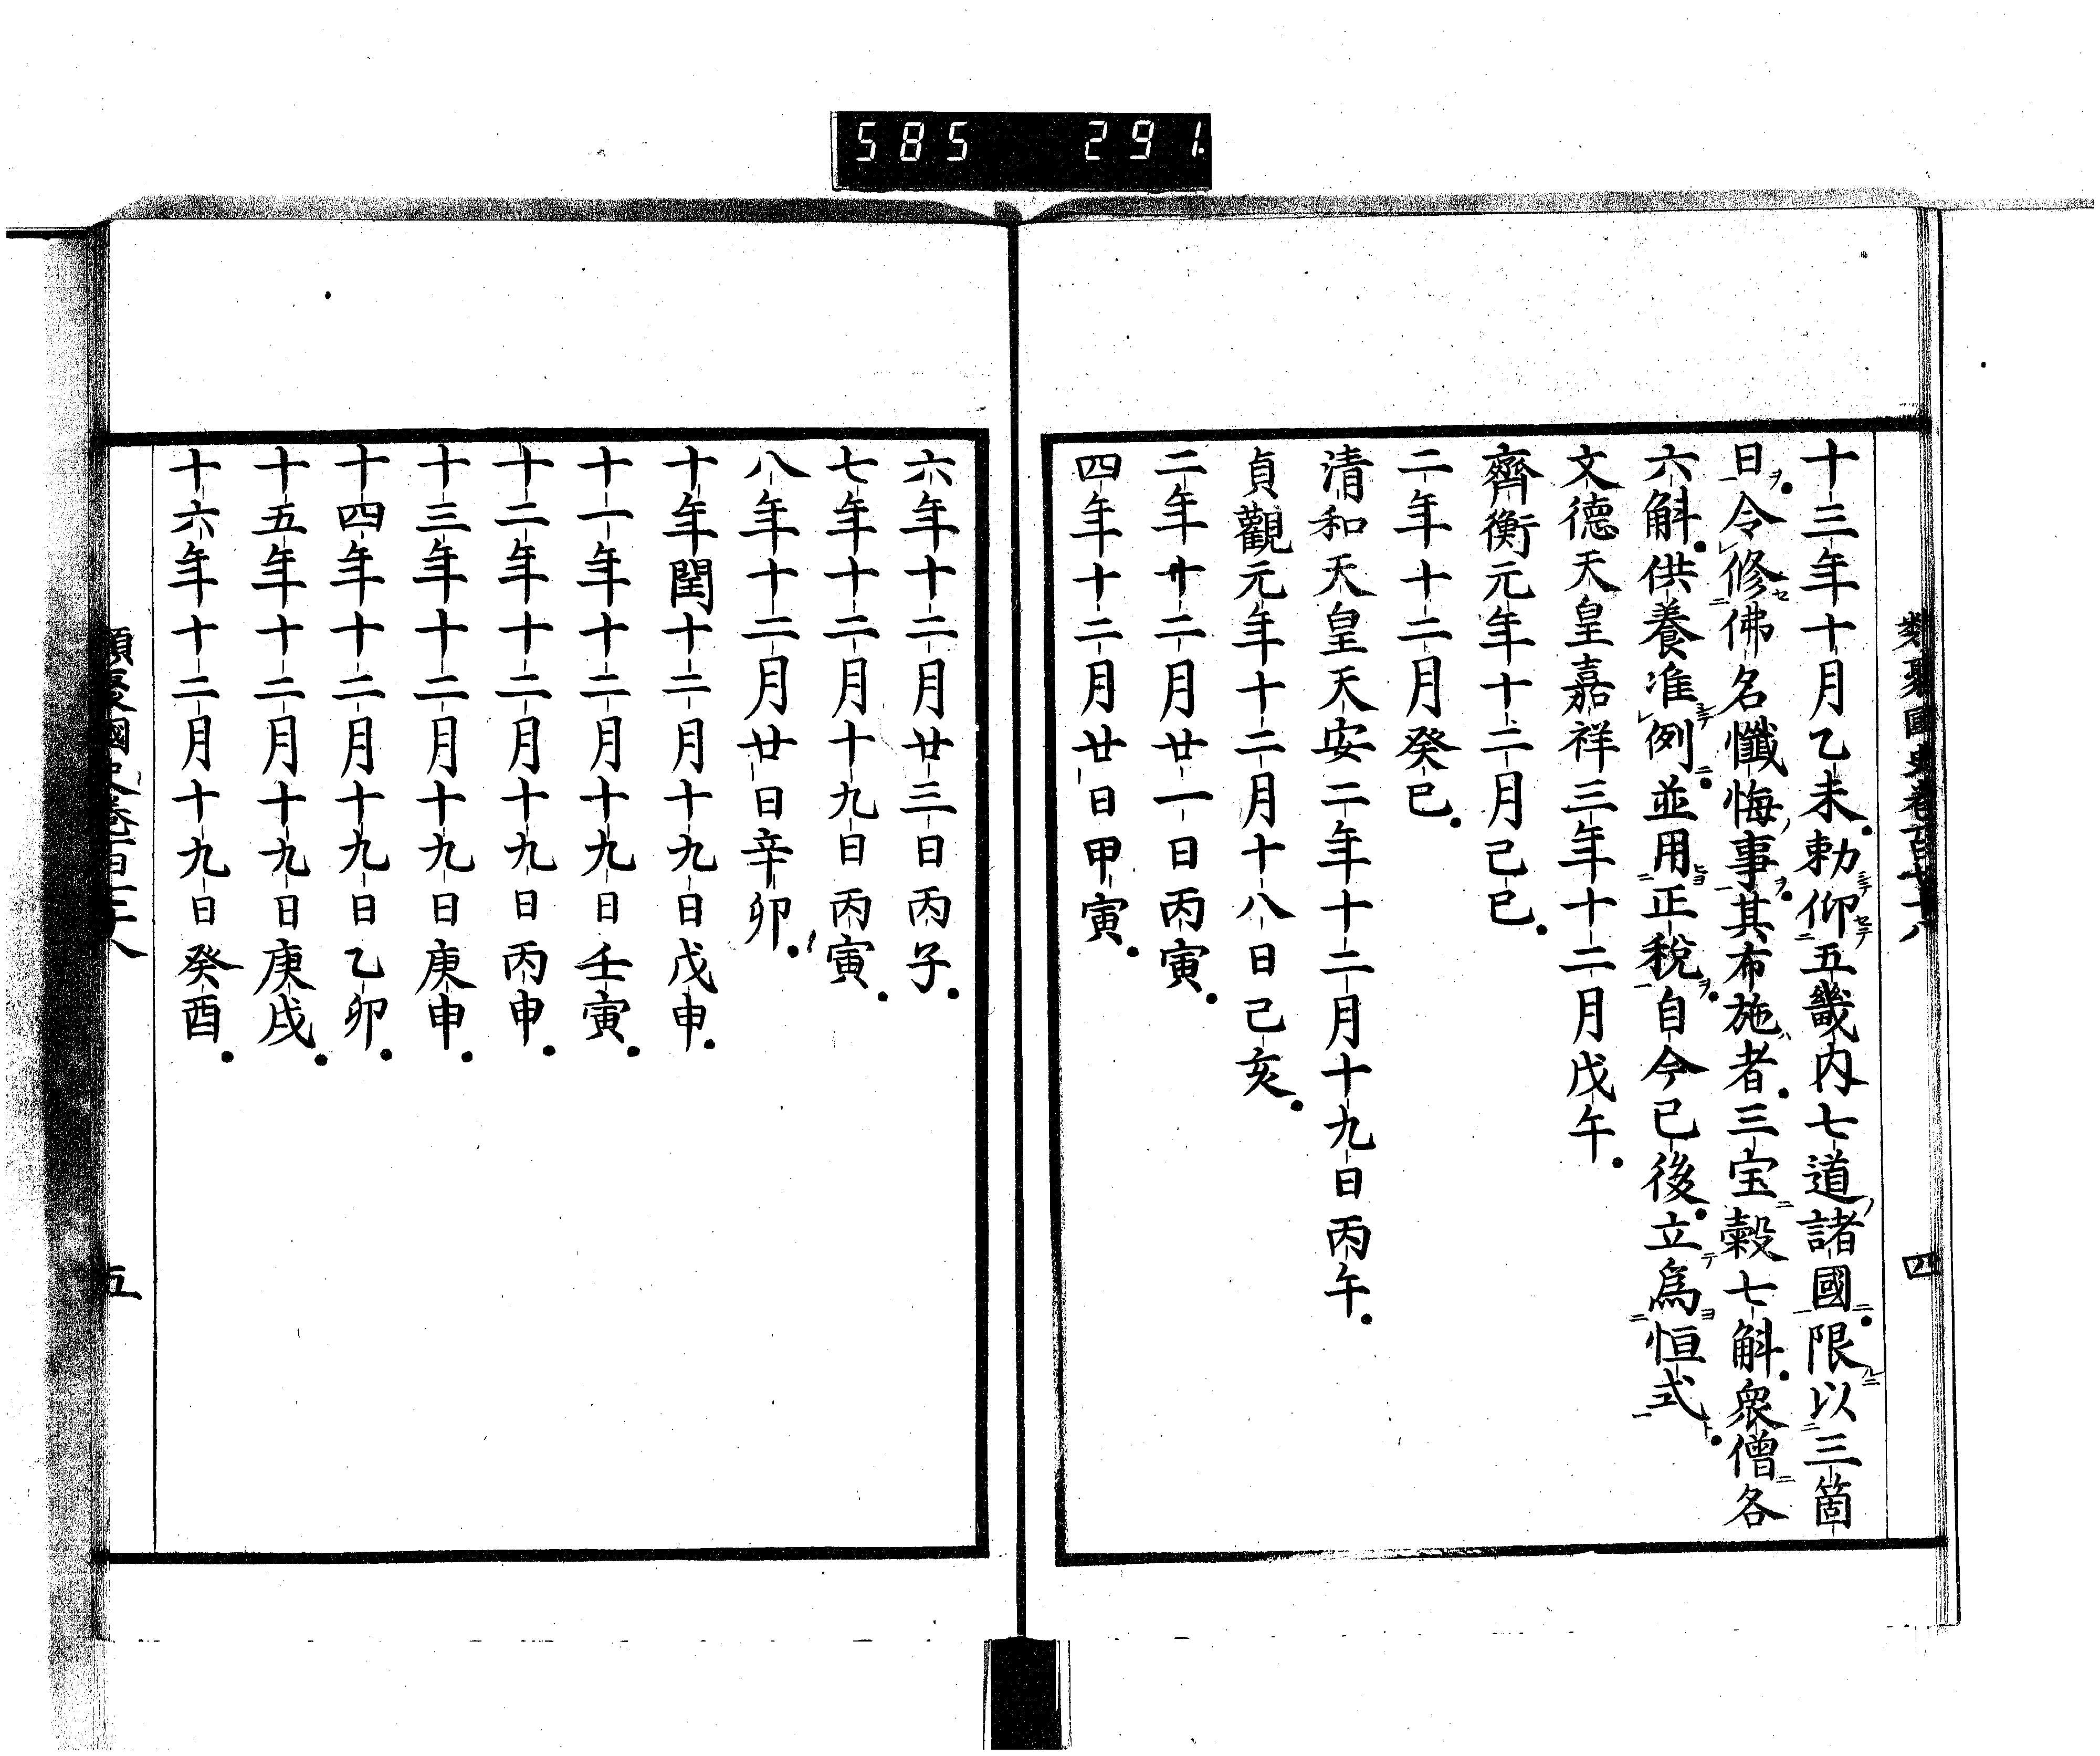 585 291
十三年十月乙未勅仰五畿内七道諸國限以三箇
日令修佛名懺悔事其布施者三宝穀七斛衆僧各
六斛供養准例並用正税自今已後立為恒式
文德天皇嘉祥三年十二月戊午
齊衡元年十二月己巳
二年十二月癸巳
清和天皇天安二年十二月十九日丙午
貞觀元年十二月十八日己亥
二年十二月廿一日丙寅
四年十二月廿日甲寅
四
六年十二月廿三日丙子
七年十二月十九日丙寅
八年十二月廿日辛卯
十年閏十二月十九日戊申
十一年十二月十九日壬寅
十二年十二月十九日丙申
十三年十二月十九日庚申
十四年十二月十九日乙卯
十五年十二月十九日庚戌
十六年十二月十九日癸酉
五